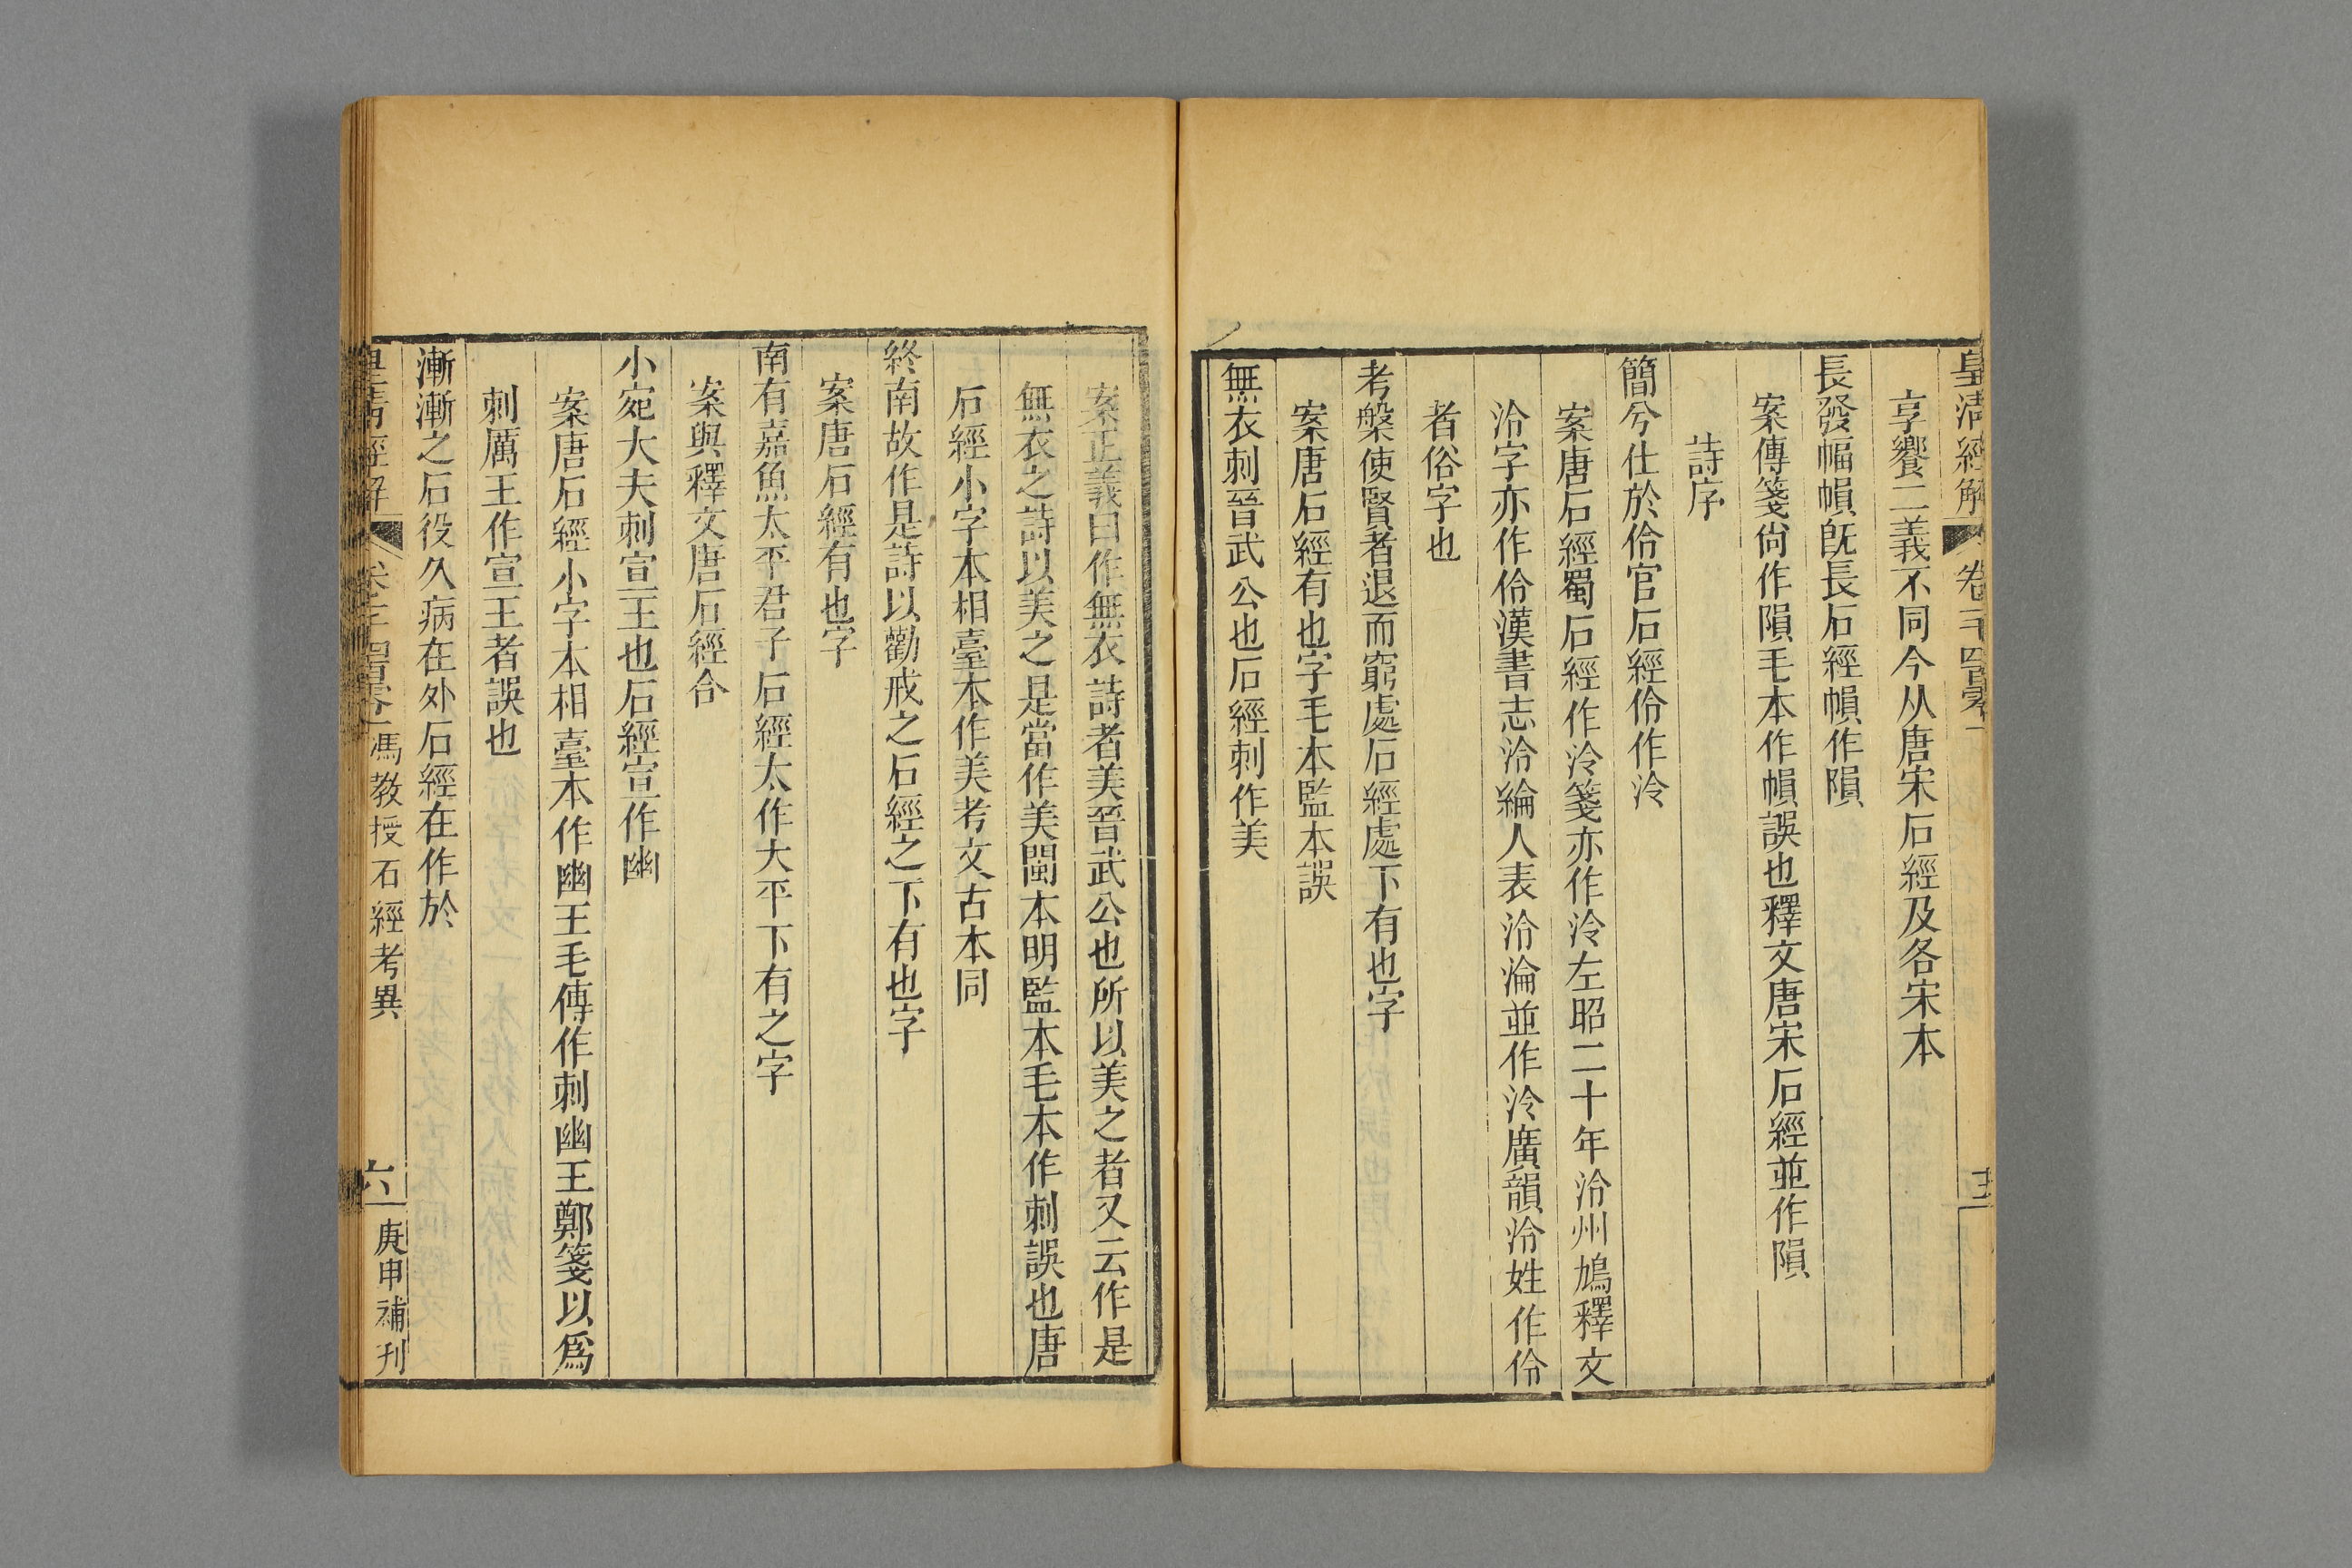 皇清經解 卷一千四百零一
享饗二義不同今从唐宋石經及各宋本
長發幅幀旣長石經幀作隕
案傳箋尙作隕毛本作幀誤也釋文唐宋石經並作隕
詩序
簡兮仕於伶官石經伶作泠
案唐石經蜀石經作泠箋亦作泠左昭二十年泠州鳩釋文
泠字亦作伶漢書志泠綸人表泠淪並作泠廣韻泠姓作伶
者俗字也
考槃使賢者退而窮處石經處下有也字
案唐石經有也字毛本監本誤
無衣刺晉武公也石經刺作美
案正義曰作無衣詩者美晉武公也所以美之者又云作是
無衣之詩以美之是當作美閩本明監本毛本作刺誤也唐
石經小字本相臺本作美考文古本同
終南故作是詩以勸戒之石經之下有也字
案唐石經有也字
南有嘉魚太平君子石經太作大平下有之字
案與釋文唐石經合
小宛大夫刺宣王也石經宣作幽
案唐石經小字本相臺本作幽王毛傳作刺幽王鄭箋以爲
刺厲王作宣王者誤也
漸漸之石役久病在外石經在作於
皇淸經解 卷一千四百零一 馮教授石經考異 六 庚申補刊